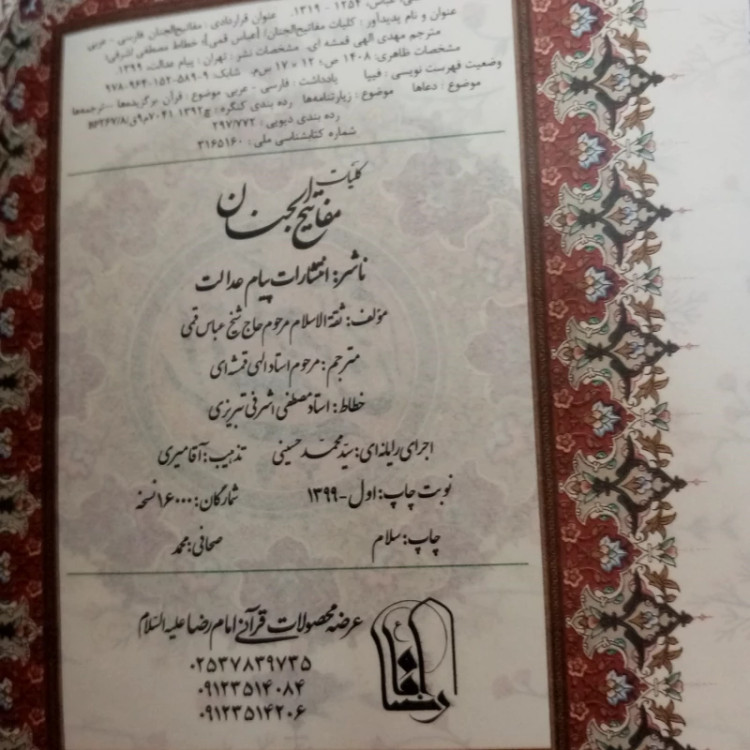 قمی، عباس، ۱۲۵۴ - ۱۳۱۹. عنوان قراردادی: مفاتیح‌الجنان فارسی - عربی
عنوان و نام پدیدآور: کلیات مفاتیح‌الجنان/ [عباس قمی]؛ خطاط مصطفی اشرفی؛
مترجم مهدی الهی قمشه ای. مشخصات نشر: تهران: پیام عدالت، ۱۳۹۹.
مشخصات ظاهری: ۱۴۰۸ ص؛ ۱۲ × ۱۷ س‌م. شابک: ۹-۵۸۹-۱۵۲-۹۶۴-۹۷۸
وضعیت فهرست نویسی: فیپا یادداشت: فارسی - عربی موضوع: قرآن برگزیده‌ها --ترجمه‌ها
موضوع: دعاها موضوع: زیارتنامه‌ها رده بندی کنگره: ۱۳۹۲ ۷۰۴۱م۹ق/BP۲۶۷/۸
رده بندی دیویی: ۲۹۷/۷۷۲
شماره کتابشناسی ملی: ۳۱۶۵۱۶۰
کلیات
مفاتیح الجنان
ناشر: انتشارات پیام عدالت
مؤلف: ثقة الاسلام مرحوم حاج شیخ عباس قمی
مترجم: مرحوم استاد الهی قمشه ای
خطاط: استاد مصطفی اشرفی تبریزی
اجرای رایانه ای: سید محمد حسینی تذهیب: آقامیری
نوبت چاپ: اول - ۱۳۹۹ شمارگان: ۱۶۰۰۰ نسخه
چاپ: سلام صحافی: محمد
عرضه محصولات قرآنی امام رضا علیه السلام
۰۲۵۳۷۸۳۹۷۳۵
۰۹۱۲۳۵۱۴۰۸۴
۰۹۱۲۳۵۱۴۲۰۶